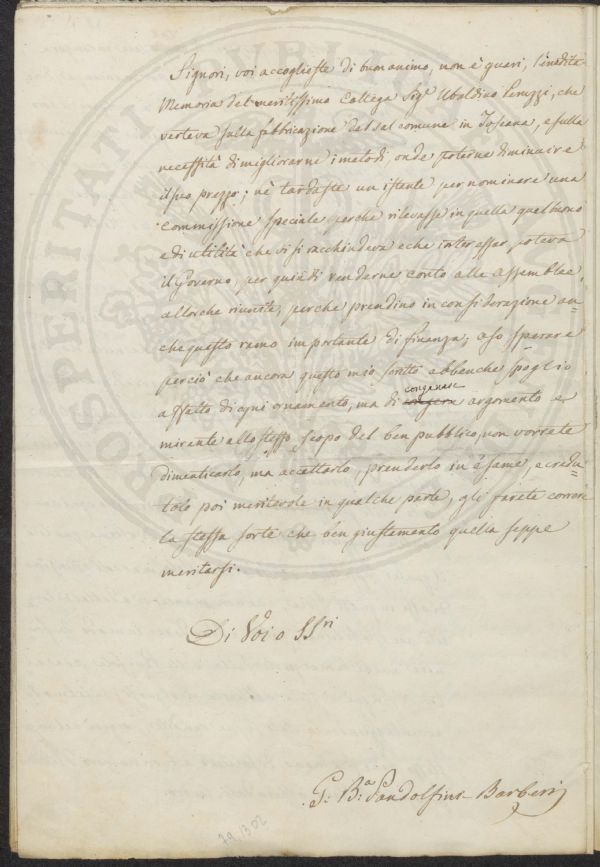 Signori, voi accoglieste di buon animo, non è guari, l'inedita
Memoria del meritissimo Collega Sigr Ubaldino Peruzzi, che
verteva sulla fabbricazione del sal comune in Toscana, e sulla
necessità di migliorarne i metodi, onde poterne diminuire
il suo prezzo; nè tardaste un istante per nominare una
Commissione speciale perche rilevasse in quella quel buono
e di utilità che vi si racchiudeva e che interessar poteva
il Governo, per quindi renderne conto alle assemblee,
allorche riunite, perche prendino in considerazione an=
che questo ramo importante di finanza; oso sperare
perciò che ancora questo mio scritto abbenche spoglio
affatto di ogni ornamento, ma di congenere argomento e
mirante allo stesso scopo del ben pubblico, non vorrete
dimenticarlo, ma accettarlo, prenderlo in esame, e credu=
tolo poi meritevole in qualche parte, gli farete correre
la stessa sorte che ben giustamente quella seppe
meritarsi.
Di Voi o SSri
G: Ba Pandolfini-Barberi
79/302
PROSPERITATI PUBLICAE